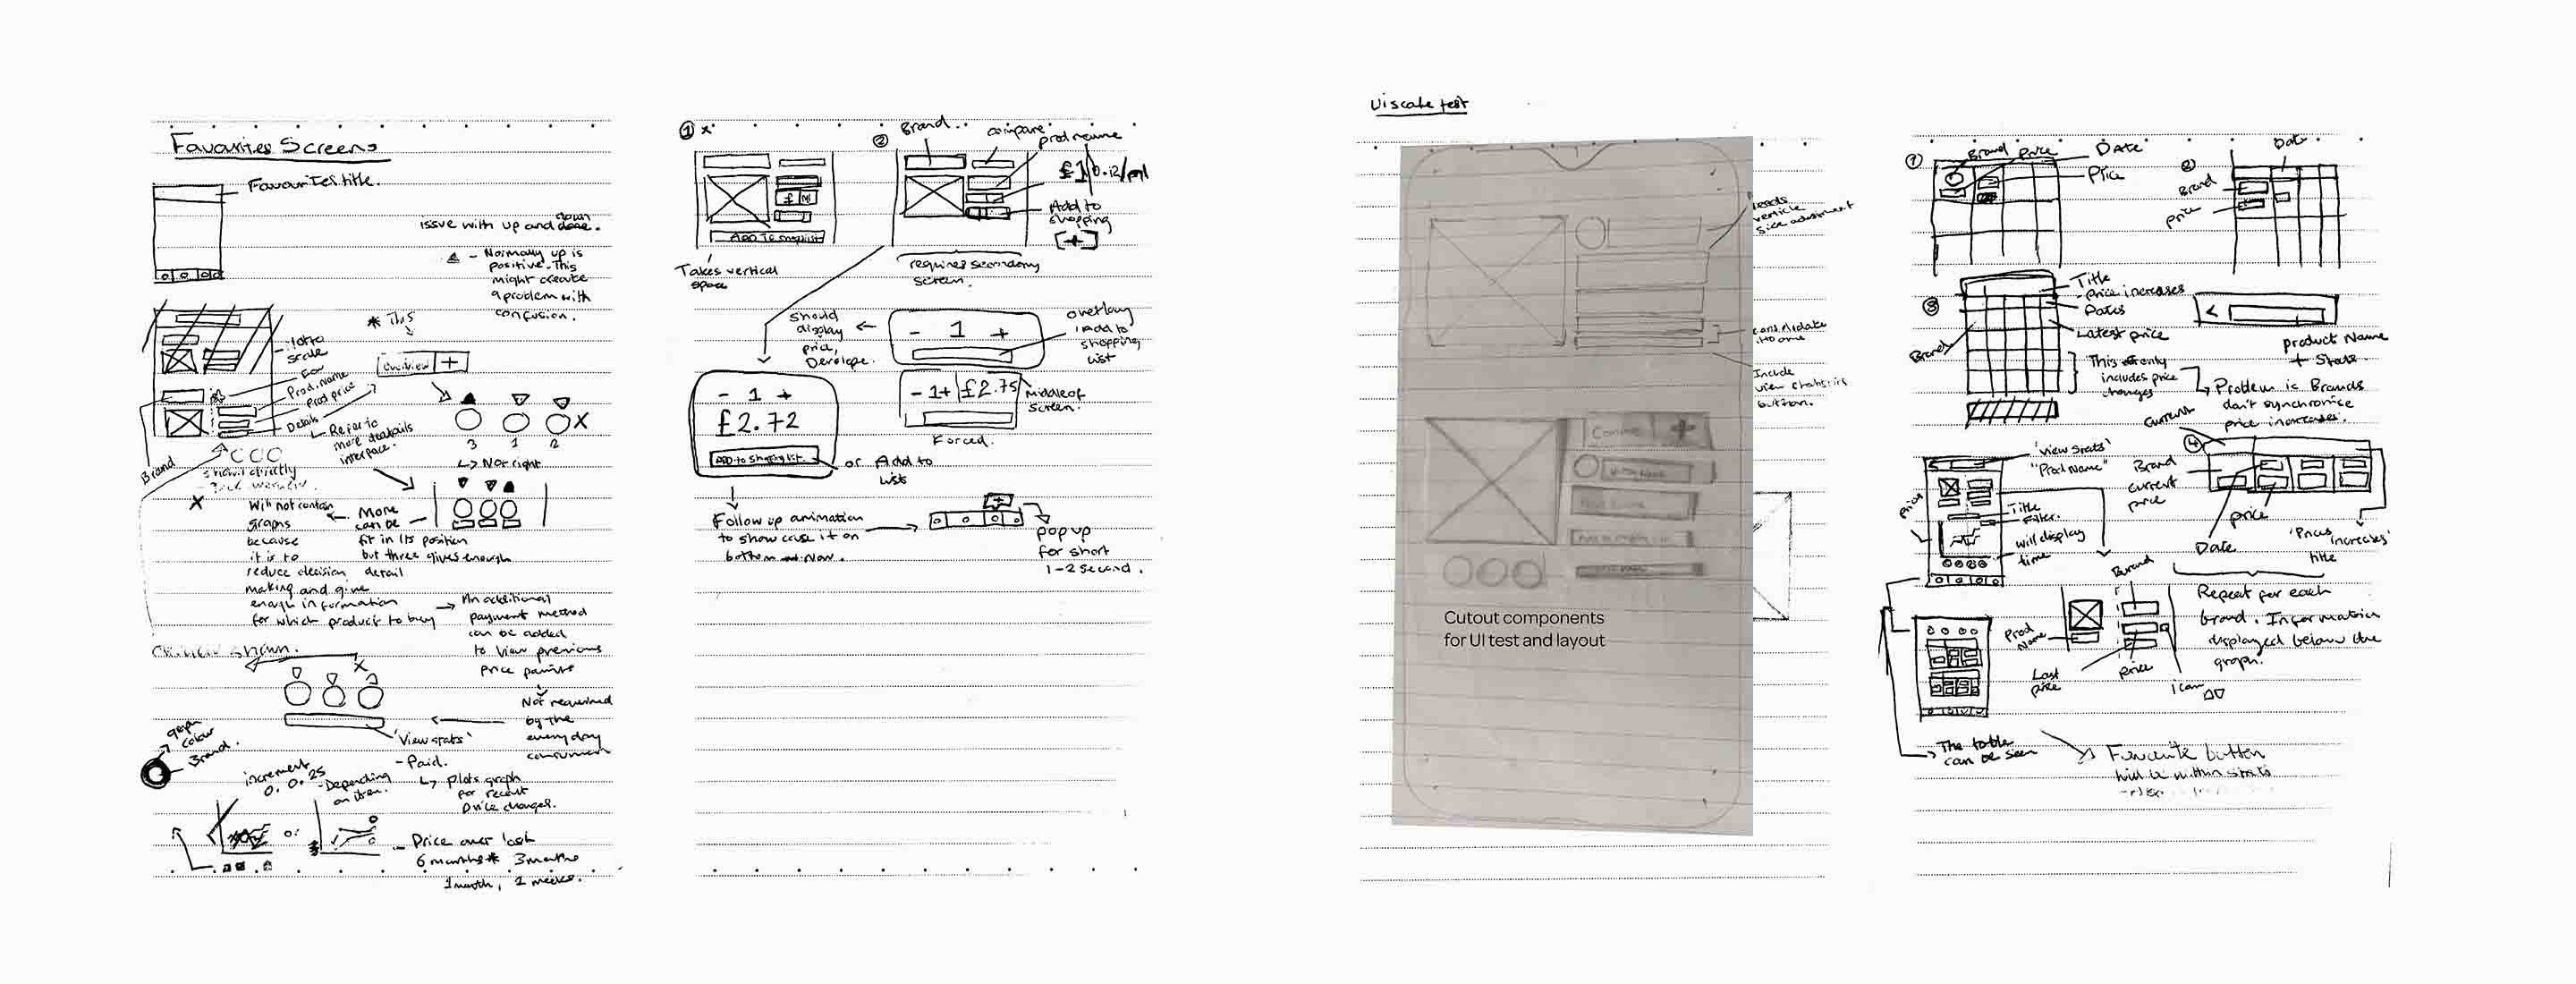 Favourites Screens
Favourites title.
issue with up and down
done.
- Normally up is
positive. This
might create
a problem with
confusion.
* This
scale
For
Prod. name
Prod price
Details
Refer to
more details
interface.
Brand
3 1 2
Not right
Will not contain
graphs
because
it is to
reduce decision
making and give
enough information
for which product to buy
More
can be
fit in its position
but three gives enough
detail
An additional
payment method
can be added
to view previous
price points
Not required
by the
everyday
consumer
'View stats'
- Paid.
plots graph
for recent
price changes.
graph
colour
Brand.
increment
0.25
- Depending
on item.
or
- Price over last
6 months * 3 months
1 month, 2 weeks.
① x
② Brand.. compare
prod name
£1/0.12/ml
Add to
shopping
[+]
£
Takes vertical
space
requires secondary
screen.
should
display
price,
Develope.
- 1 +
overlay
Add to
shopping
list
- 1 +
£2.72
Add to shopping list.
or Add to
lists
- 1 + £2.75
Middle of
screen.
Forced.
Follow up animation
to show case it on
bottom Nav.
+
pop up
for short
1-2 second.
UI scale test
needs
verticle
size adjustment
Include
view statistics
button.
+
Cutout components
for UI test and layout
①
Brand Price Date
Price
②
Date
Brand
price
③
Title
- price increases
Dates
Latest price
Brand
This only
includes price
changes
<
product Name
+ Stats.
Problem is Brands
don't synchronise
price increases.
Current
④
'view stats'
"Prod Name"
Brand
current
price
price
Date
'Prices increases'
title
Price
Title
Filter.
will display
time
Brand
Prod
Name
Last
price
price
Icon
Repeat for each
brand. Information
displayed below the
graph.
The table
can be seen
Favourite button
will be within stats